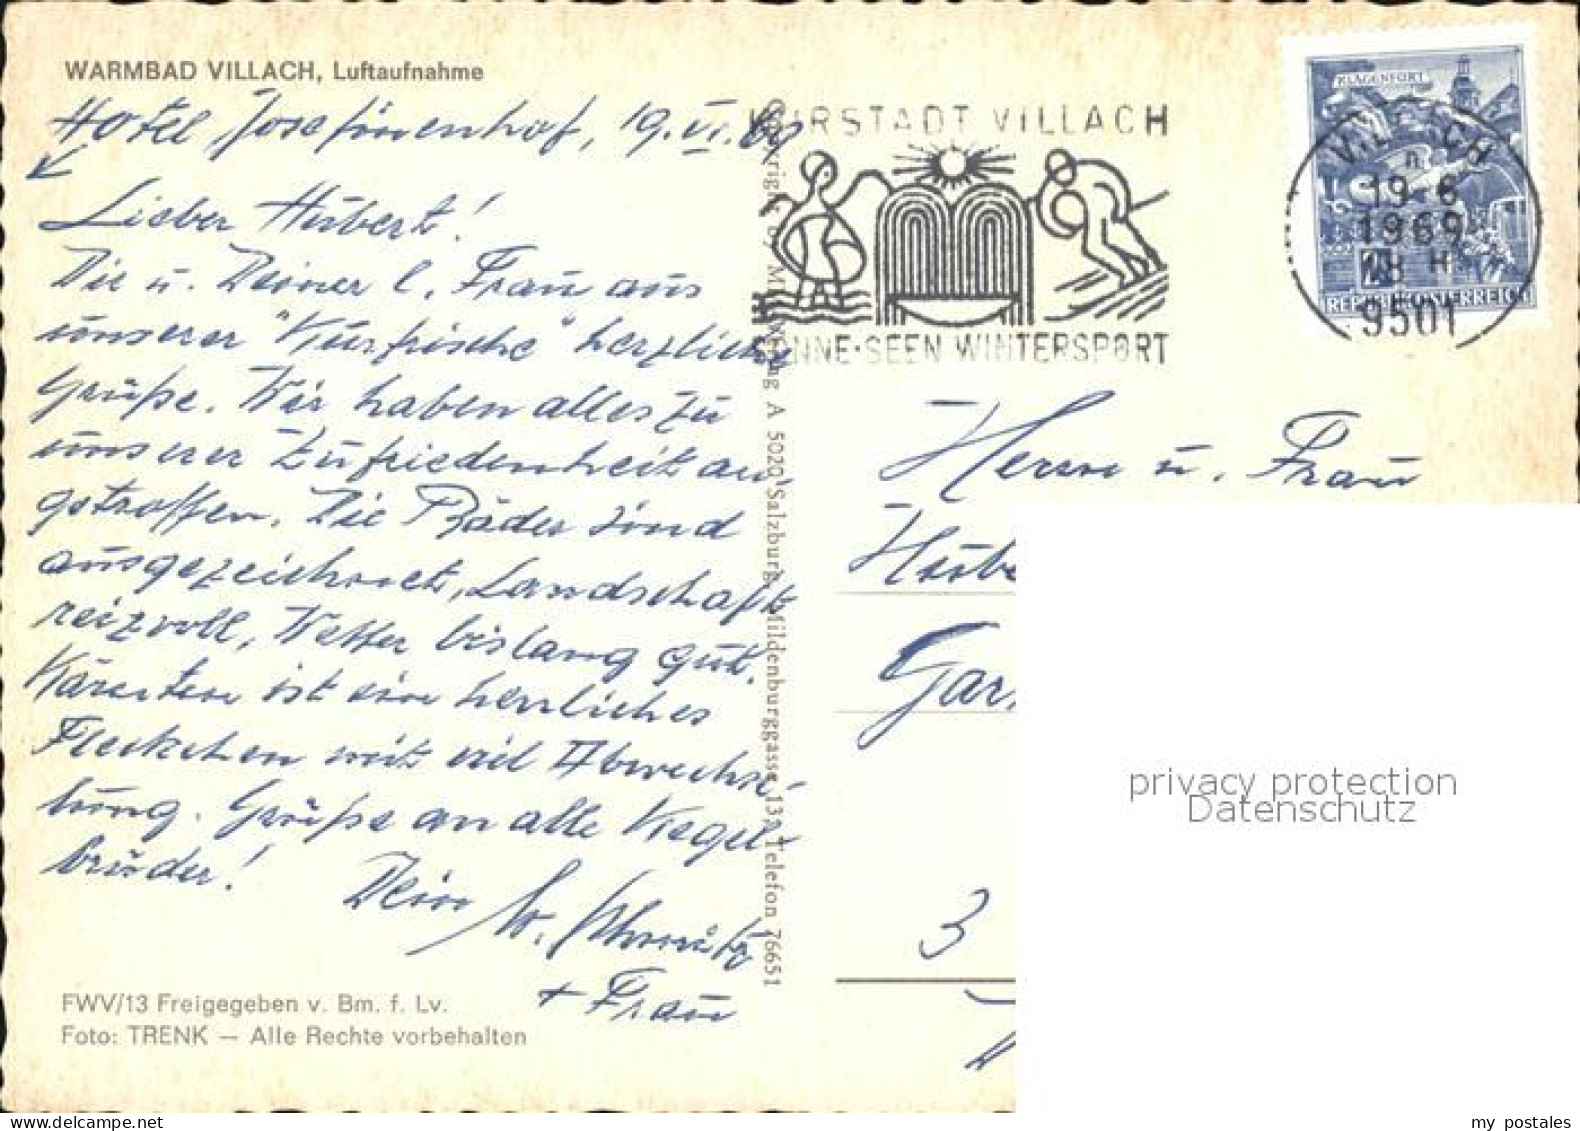 WARMBAD VILLACH, Luftaufnahme
Hotel Josefinenhof, 19.VI.69
Lieber Hubert!
Die u. Deiner l. Frau aus
unserer "Kurfrische" herzliche
Grüße. Wir haben alles zu
unserer Zufriedenheit an-
getroffen. Die Bäder sind
ausgezeichnet, Landschaft
reizvoll, Wetter bislang gut.
Kärnten ist ein herrliches
Fleckchen mit viel Abwechse-
lung. Grüße an alle Kegel-
brüder!
Dein Schmitz
+ Frau
FWV/13 Freigegeben v. Bm. f. Lv.
Foto: TRENK — Alle Rechte vorbehalten
Verlag A 5020 Salzburg, Mildenburggasse 13, Telefon 76651
KURSTADT VILLACH
SONNE·SEEN WINTERSPORT
KLAGENFURT
REPUBLIK ÖSTERREICH
VILLACH
n
19-6
1969
18 H
9501
Herrn u. Frau
Hube
Gar
3
privacy protection
Datenschutz
my postales